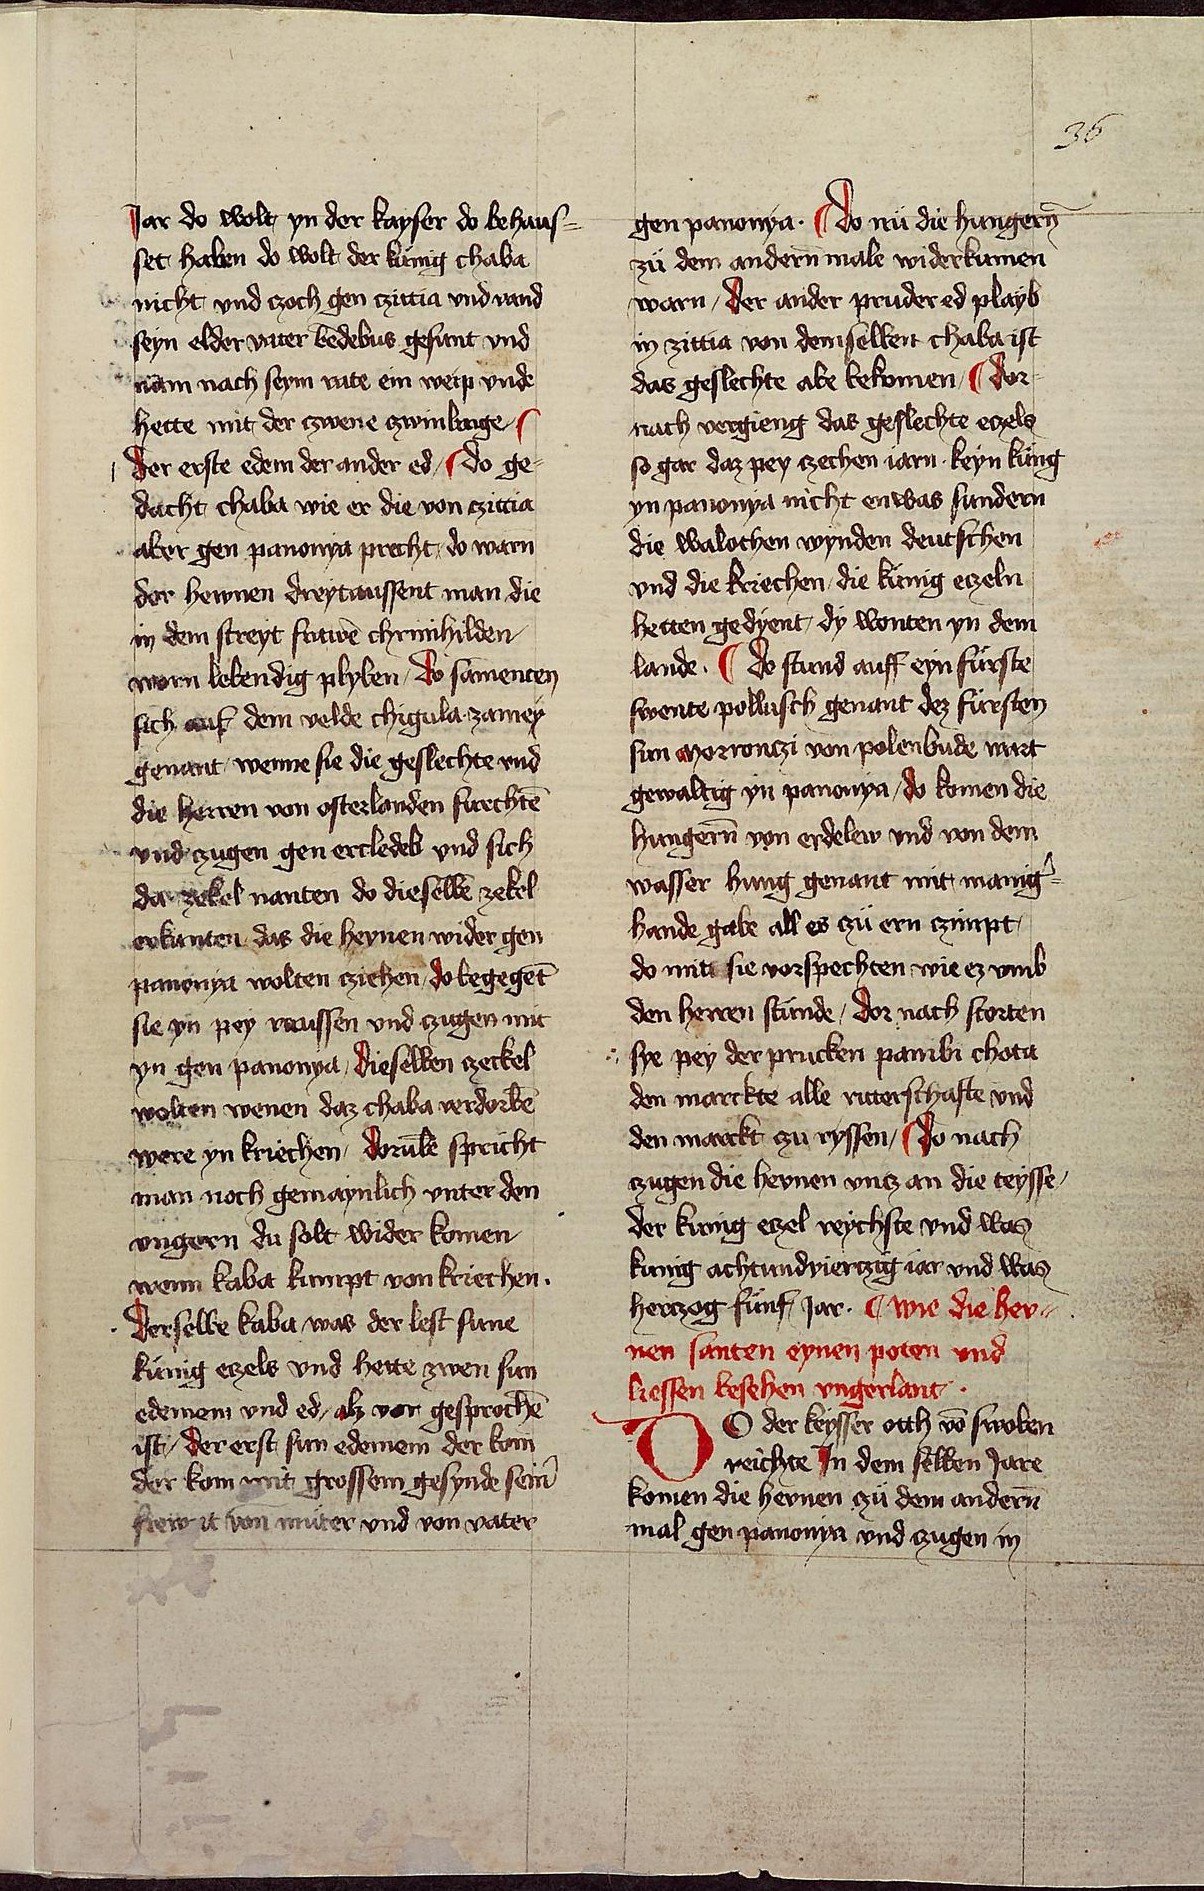 36
Jar do wolt yn der kayser do behaus-
set haben do wolt der kunig chaba
nicht und czoch gen czittia und vand
seyn elder vater bedebus gesunt und
nam nach seym rate ein weip unde
hette mit der czwene czwinlinge ¶
der erste edem der ander ed / ¶ do ge-
dacht chaba wie er die von czittia
aber gen panonya precht / do warn
der hewnen dreytaussent man die
in dem streyt frawē chrimhilden
worn lebendig plyben / do samenten
sich auf dem velde chigula zamey
genant / wenne sie die geslechte und
die herren von osterlanden furchtē
und zugen gen ercledeb und sich
da zekel nanten do dieselbē zekel
erkanten das die heynen wider gen
panonya wolten cziehen / do begegēt
sie yn pey reussen und czugen mit
yn gen panonya / dieselben czeckel
wolten wenen daz chaba verdorbē
were yn kriechen / dorūbe spricht
man noch gemaynlich unter den
ungern du solt wider komen
wenn kaba kumpt von kriechen .
derselbe kaba was der lest sune
kunig eczels und hette zwen sun
edemem und ed / alz vor gesprochē
ist / der erst sun edemem der kom
der kom mit grossem gesynde seinr
von muter und von vater
gen panonya . ¶ do nu die hungern
zu dem andern male widerkumen
warn / der ander pruder ed playb
in zittia von demselben chaba ist
das geslechte abe bekomen / ¶ dor-
nach vergieng das geslechte eczels
so gar daz pey czechen iarn keyn kung
yn panonya nicht enwas sundern
die walochen wynden deutschen
und die kriechen die kunig eczeln
hetten gedyent / dy wonten yn dem
lande . ¶ do stund auff eyn furste
swente pollusch genant dez fursten
sun morronczi von polenbude wart
gewaltig yn panonya / do komen die
hungern von erdelew und von dem
wasser hung genant mit manigr-
hande gabe all es zu ern czimpt
do mit sie vorspechten wie ez umb
den herren stunde / dor nach storten
sye pey der prucken pambi chota
den marckte alle ritterschafte und
den marckt zu ryssen / ¶ do nach
czugen die heynen uncz an die teysse /
der kunig eczel reychste und was
kunig achtundvierczig iar und was
herczog funf Jar . ¶ wie die hey-
nen santen eynen poten und
liessen besehen ungerlant .
DO der keysser otth vō swoben
reichte In dem selben Jare
komen die heynen zu dem andern
mal gen panonya und czugen in